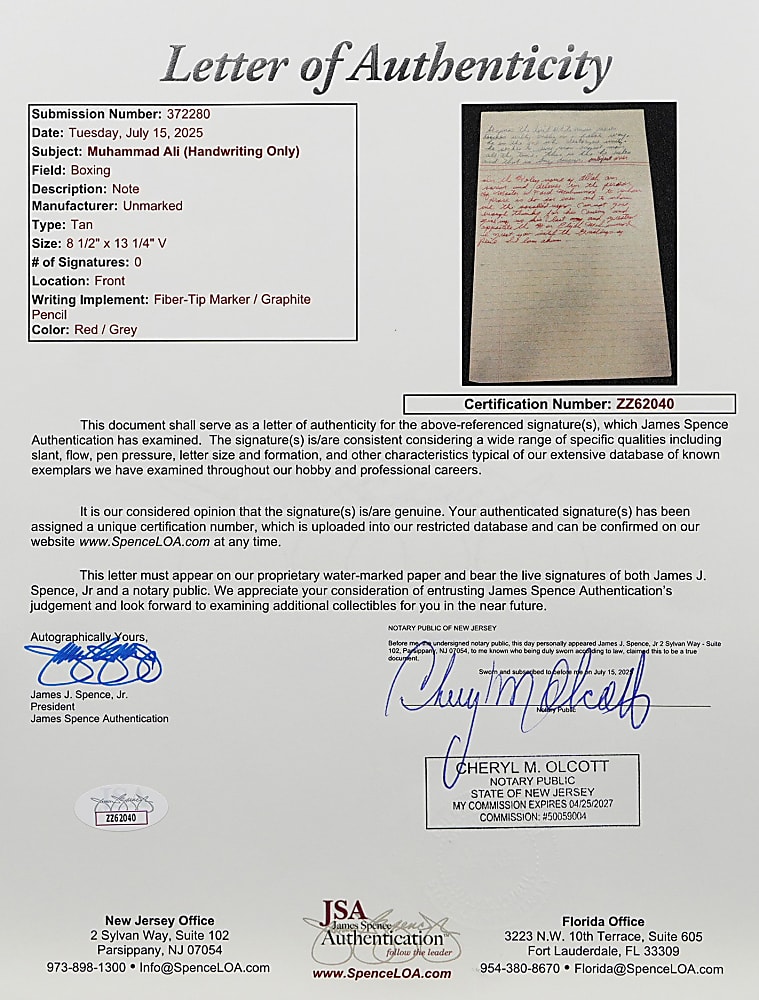 Letter of Authenticity
Submission Number: 372280
Date: Tuesday, July 15, 2025
Subject: Muhammad Ali (Handwriting Only)
Field: Boxing
Description: Note
Manufacturer: Unmarked
Type: Tan
Size: 8 1/2" x 13 1/4" V
# of Signatures: 0
Location: Front
Writing Implement: Fiber-Tip Marker / Graphite
Pencil
Color: Red / Grey
Certification Number: ZZ62040
This document shall serve as a letter of authenticity for the above-referenced signature(s), which James Spence
Authentication has examined. The signature(s) is/are consistent considering a wide range of specific qualities including
slant, flow, pen pressure, letter size and formation, and other characteristics typical of our extensive database of known
exemplars we have examined throughout our hobby and professional careers.
It is our considered opinion that the signature(s) is/are genuine. Your authenticated signature(s) has been
assigned a unique certification number, which is uploaded into our restricted database and can be confirmed on our
website www.SpenceLOA.com at any time.
This letter must appear on our proprietary water-marked paper and bear the live signatures of both James J.
Spence, Jr and a notary public. We appreciate your consideration of entrusting James Spence Authentication's
judgement and look forward to examining additional collectibles for you in the near future.
Autographically Yours,
James J. Spence, Jr.
President
James Spence Authentication
NOTARY PUBLIC OF NEW JERSEY
Before me, the undersigned notary public, this day personally appeared James J, Spence, Jr 2 Sylvan Way - Suite
102, Parsippany, NJ 07054, to me known who being duly sworn according to law, claimed this to be a true
document.
Sworn and subscribed to before me on July 15, 2025
Cheryl M Olcott
Notary Public
CHERYL M. OLCOTT
NOTARY PUBLIC
STATE OF NEW JERSEY
MY COMMISSION EXPIRES 04/25/2027
COMMISSION: #50059004
ZZ62040
New Jersey Office
2 Sylvan Way, Suite 102
Parsippany, NJ 07054
973-898-1300 • Info@SpenceLOA.com
JSA
James Spence
Authentication
follow the leader
www.SpenceLOA.com
Florida Office
3223 N.W. 10th Terrace, Suite 605
Fort Lauderdale, FL 33309
954-380-8670 • Florida@SpenceLOA.com